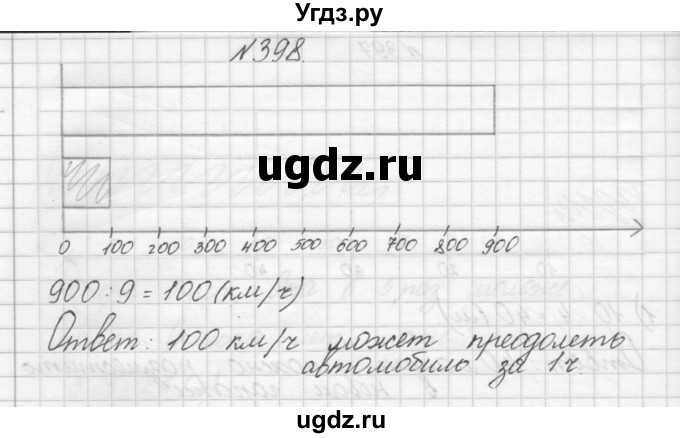 Угдз.ру
№398.
ugdz.ru
0 100 200 300 400 500 600 700 800 900
900 : 9 = 100 (км/ч)
Ответ: 100 км/ч может преодолеть
автомобиль за 1 ч
ugdz.ru